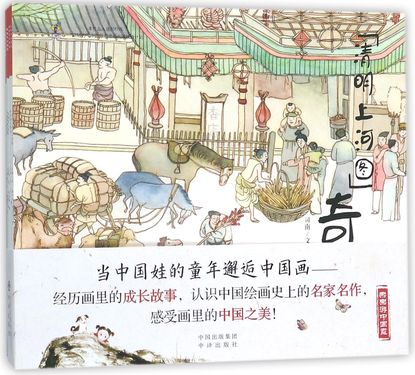 清明上河图
奇
当中国娃的童年邂逅中国画——
经历画里的成长故事，认识中国绘画史上的名家名作，
感受画里的中国之美！
中国出版集团
中译出版社